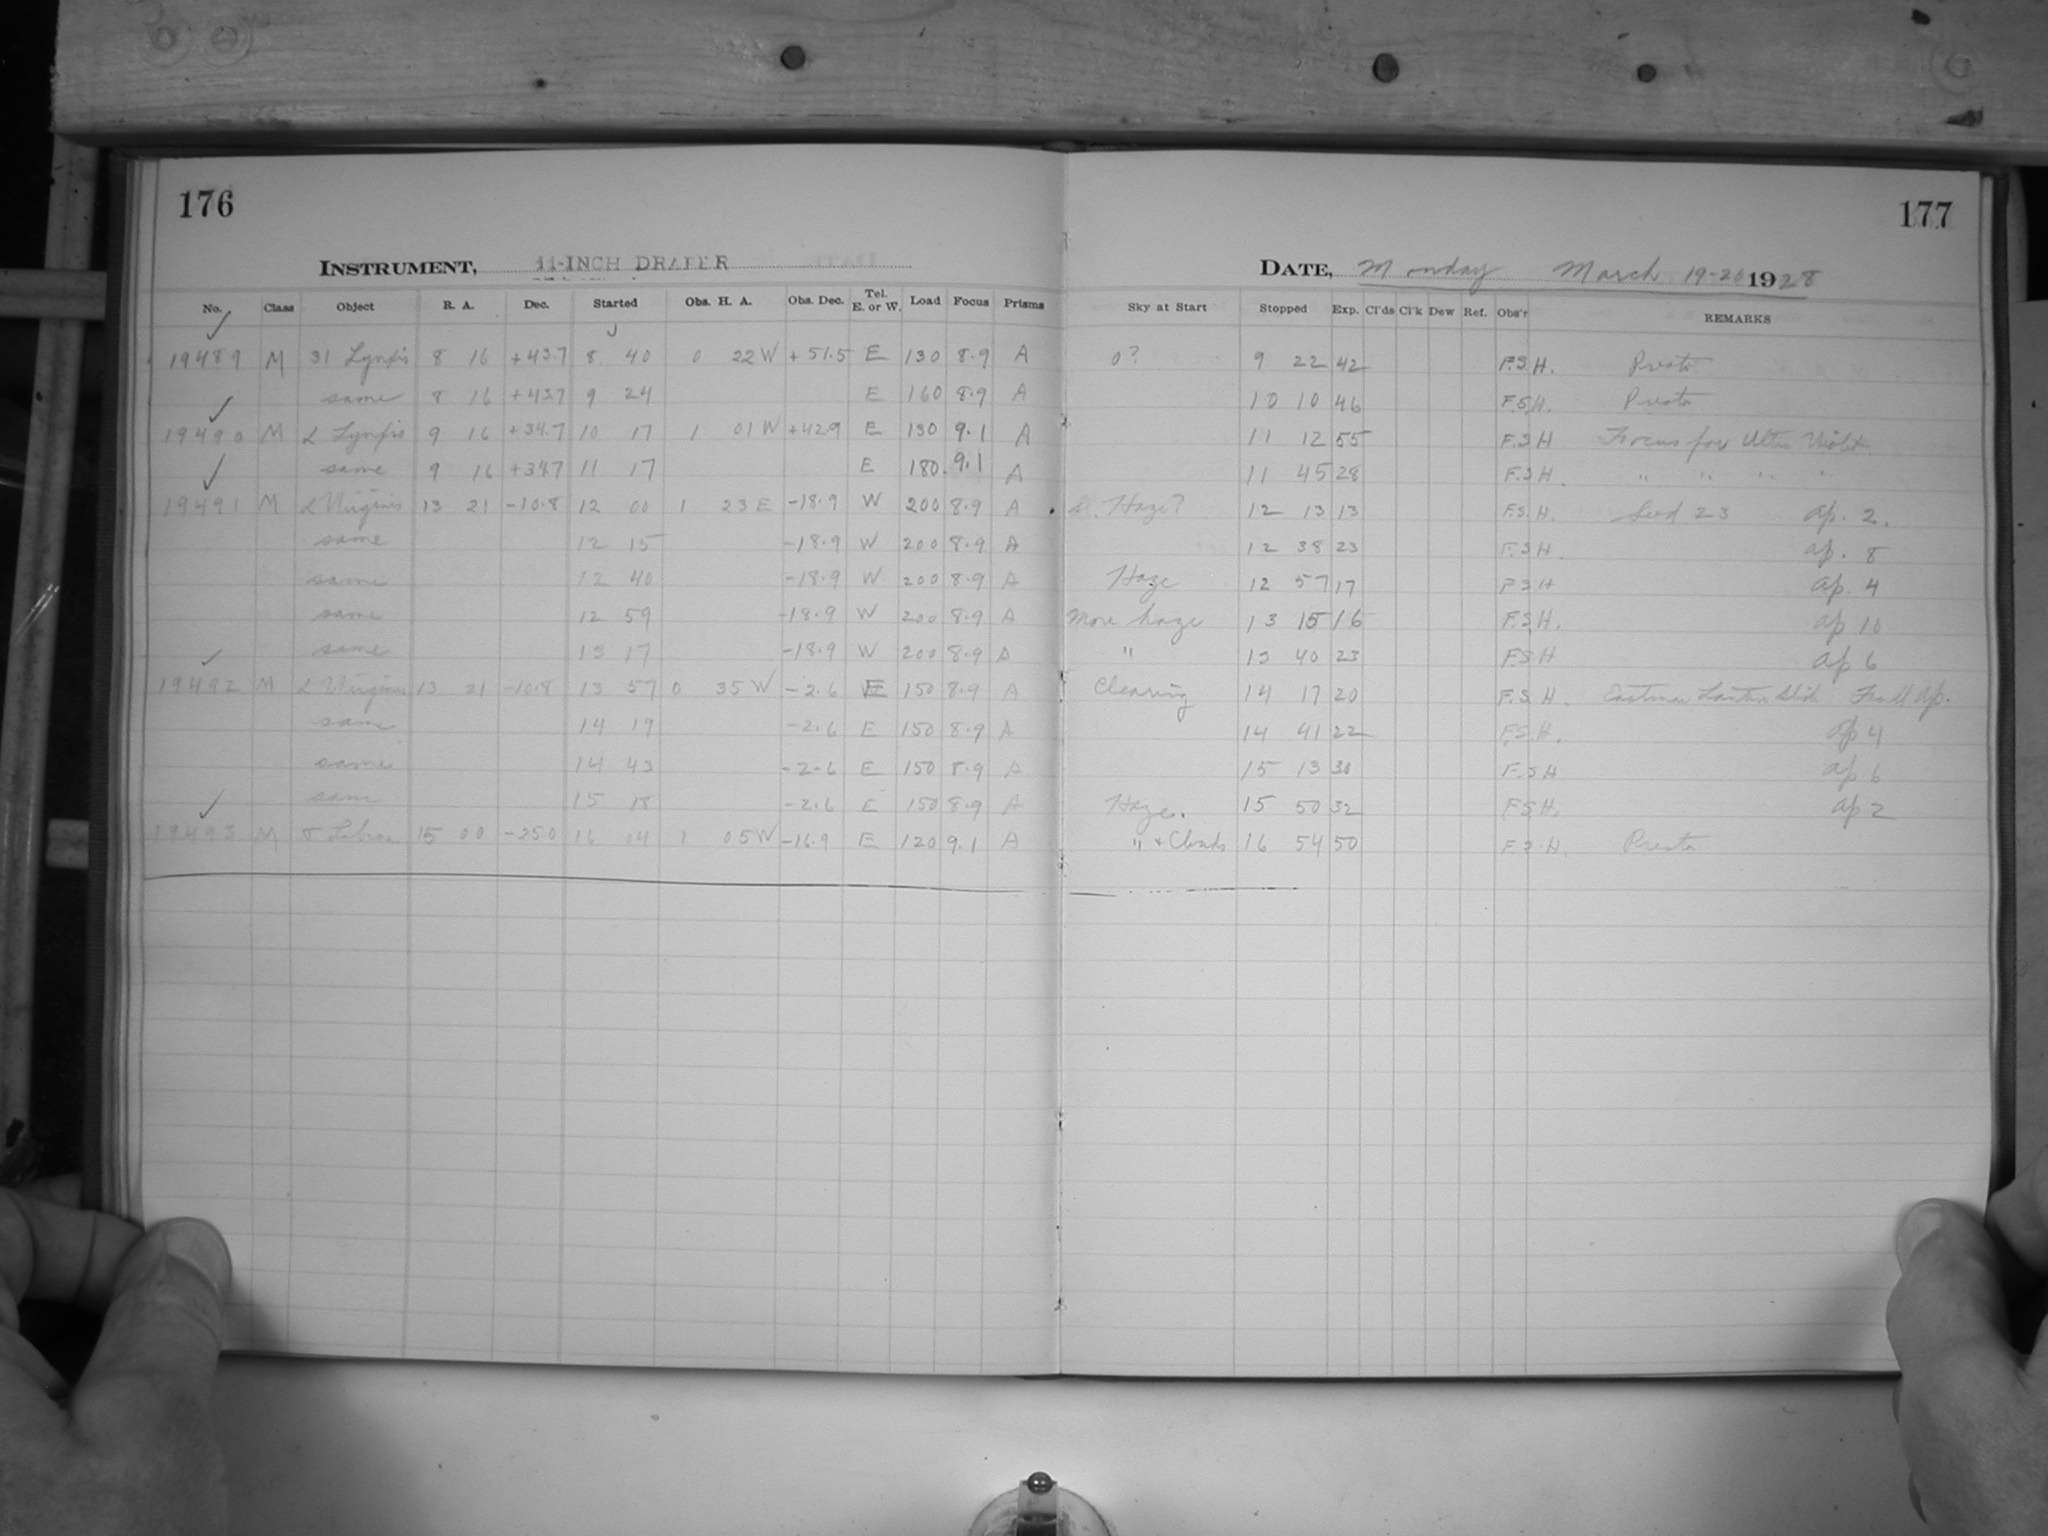 176
177
INSTRUMENT, 11-INCH DRAPER
DATE, Monday March 19-20 1928
No. Class Object R. A. Dec. Started Obs. H. A. Obs. Dec. Tel. E. or W. Load Focus Prisms Sky at Start Stopped Exp. Cl'ds Cl'k Dew Ref. Obs'r REMARKS
19489 M 31 Lyncis 8 16 +43.7 8 40 0 22 W +51.5 E 130 8.9 A 0? 9 22 42 F.S.H. Presto
same 8 16 +43.7 9 24 E 160 8.9 A 10 10 46 F.S.H. Presto
19490 M α Lyncis 9 16 +34.7 10 17 1 01 W +42.9 E 130 9.1 A 11 12 55 F.S.H Focus for Ultra Violet
same 9 16 +34.7 11 17 E 180. 9.1 A 11 45 28 F.S.H. " " " "
19491 M α Virginis 13 21 -10.8 12 00 1 23 E -18.9 W 200 8.9 A Haze? 12 13 13 F.S.H. Seed 23 ap. 2.
same 12 15 -18.9 W 200 8.9 A 12 38 23 F.S.H. ap. 8
same 12 40 -18.9 W 200 8.9 A Haze 12 57 17 F.S.H ap. 4
same 12 59 -18.9 W 200 8.9 A More haze 13 15 16 F.S.H. ap 10
same 13 17 -18.9 W 200 8.9 A " 13 40 23 F.S.H ap 6
19492 M α Virginis 13 21 -10.8 13 57 0 35 W -2.6 E 150 8.9 A Clearing 14 17 20 F.S.H. Eastman Lantern Slide Full ap.
same 14 19 -2.6 E 150 8.9 A 14 41 22 F.S.H. ap 4
same 14 43 -2.6 E 150 8.9 A 15 13 30 F.S.H ap 6
same 15 18 -2.6 E 150 8.9 A Haze. 15 50 32 F.S.H. ap 2
19493 M σ Librae 15 00 -25.0 16 04 1 05 W -16.9 E 120 9.1 A " + Clouds 16 54 50 F.S.H. Presto